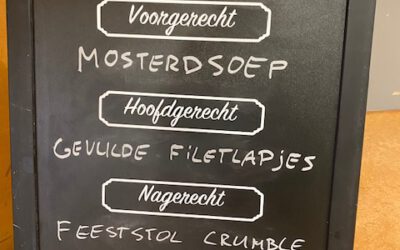 Voorgerecht
MOSTERDSOEP
Hoofdgerecht
GEVULDE FILETLAPJES
Nagerecht
FEESTSTOL CRUMBLE